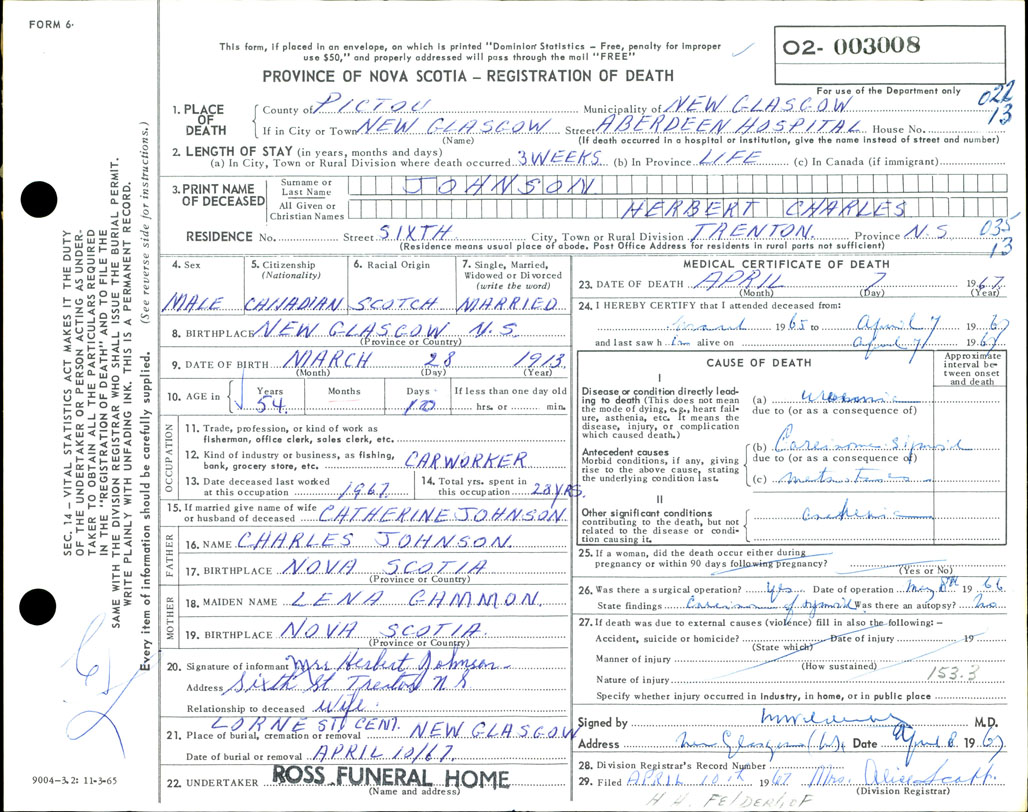 FORM 6.
This form, if placed in an envelope, on which is printed "Dominion Statistics – Free, penalty for improper
use $50," and properly addressed will pass through the mail "FREE"
02- 003008
PROVINCE OF NOVA SCOTIA – REGISTRATION OF DEATH
For use of the Department only
022
13
1. PLACE OF DEATH
County of PICTOU Municipality of NEW GLASGOW
If in City or Town NEW GLASGOW Street ABERDEEN HOSPITAL House No.
(Name) (If death occurred in a hospital or institution, give the name instead of street and number)
2. LENGTH OF STAY (in years, months and days)
(a) In City, Town or Rural Division where death occurred 3 WEEKS (b) In Province LIFE (c) In Canada (if immigrant)
3. PRINT NAME OF DECEASED
Surname or Last Name JOHNSON
All Given or Christian Names HERBERT CHARLES
RESIDENCE No. Street SIXTH City, Town or Rural Division TRENTON Province N.S
(Residence means usual place of abode. Post Office Address for residents in rural parts not sufficient)
035
13
4. Sex
MALE
5. Citizenship (Nationality)
CANADIAN
6. Racial Origin
SCOTCH
7. Single, Married, Widowed or Divorced (write the word)
MARRIED
8. BIRTHPLACE NEW GLASGOW N.S.
(Province or Country)
9. DATE OF BIRTH MARCH 28 1913
(Month) (Day) (Year)
10. AGE in Years 54 Months Days 10 If less than one day old hrs. or min.
OCCUPATION
11. Trade, profession, or kind of work as
fisherman, office clerk, sales clerk, etc.
12. Kind of industry or business, as fishing,
bank, grocery store, etc. CARWORKER
13. Date deceased last worked
at this occupation 1967
14. Total yrs. spent in
this occupation 28 YRS.
15. If married give name of wife
or husband of deceased CATHERINE JOHNSON
FATHER
16. NAME CHARLES JOHNSON
17. BIRTHPLACE NOVA SCOTIA
(Province or Country)
MOTHER
18. MAIDEN NAME LENA GAMMON.
19. BIRTHPLACE NOVA SCOTIA.
(Province or Country)
20. Signature of informant Mrs Herbert Johnson
Address Sixth St Trenton N S
Relationship to deceased Wife
LORNE ST. CENT.
21. Place of burial, cremation or removal NEW GLASGOW
Date of burial or removal APRIL 10/67.
22. UNDERTAKER ROSS FUNERAL HOME
(Name and address)
MEDICAL CERTIFICATE OF DEATH
23. DATE OF DEATH APRIL 7 1967
(Month) (Day) (Year)
24. I HEREBY CERTIFY that I attended deceased from:
1965 to April 7 1967
and last saw him alive on April 7 1967
CAUSE OF DEATH
Approximate interval between onset and death
I
Disease or condition directly leading to death (This does not mean the mode of dying, e.g., heart failure, asthenia, etc. It means the disease, injury, or complication which caused death.)
(a) uraemia
due to (or as a consequence of)
Antecedent causes
Morbid conditions, if any, giving rise to the above cause, stating the underlying condition last.
(b) Carcinoma Sigmoid
due to (or as a consequence of)
(c) metastases
II
Other significant conditions
contributing to the death, but not related to the disease or condition causing it.
25. If a woman, did the death occur either during
pregnancy or within 90 days following pregnancy?
(Yes or No)
26. Was there a surgical operation? Yes Date of operation May 8th 1966
State findings Carcinoma of sigmoid Was there an autopsy? No
27. If death was due to external causes (violence) fill in also the following:-
Accident, suicide or homicide? Date of injury 19
(State which)
Manner of injury
(How sustained)
Nature of injury 153.3
Specify whether injury occurred in industry, in home, or in public place
Signed by M.D.
Address New Glasgow N.S. Date April 8 1967
28. Division Registrar's Record Number
29. Filed APRIL 10th 1967 Mrs. Alice Scott
(Division Registrar)
H H. FELDERHOF
SEC. 14 – VITAL STATISTICS ACT MAKES IT THE DUTY
OF THE UNDERTAKER OR PERSON ACTING AS UNDER-
TAKER TO OBTAIN ALL THE PARTICULARS REQUIRED
IN THE "REGISTRATION OF DEATH" AND TO FILE THE
SAME WITH THE DIVISION REGISTRAR WHO SHALL ISSUE THE BURIAL PERMIT.
WRITE PLAINLY WITH UNFADING INK. THIS IS A PERMANENT RECORD.
Every item of information should be carefully supplied. (See reverse side for instructions.)
9004-3.2: 11-3-65